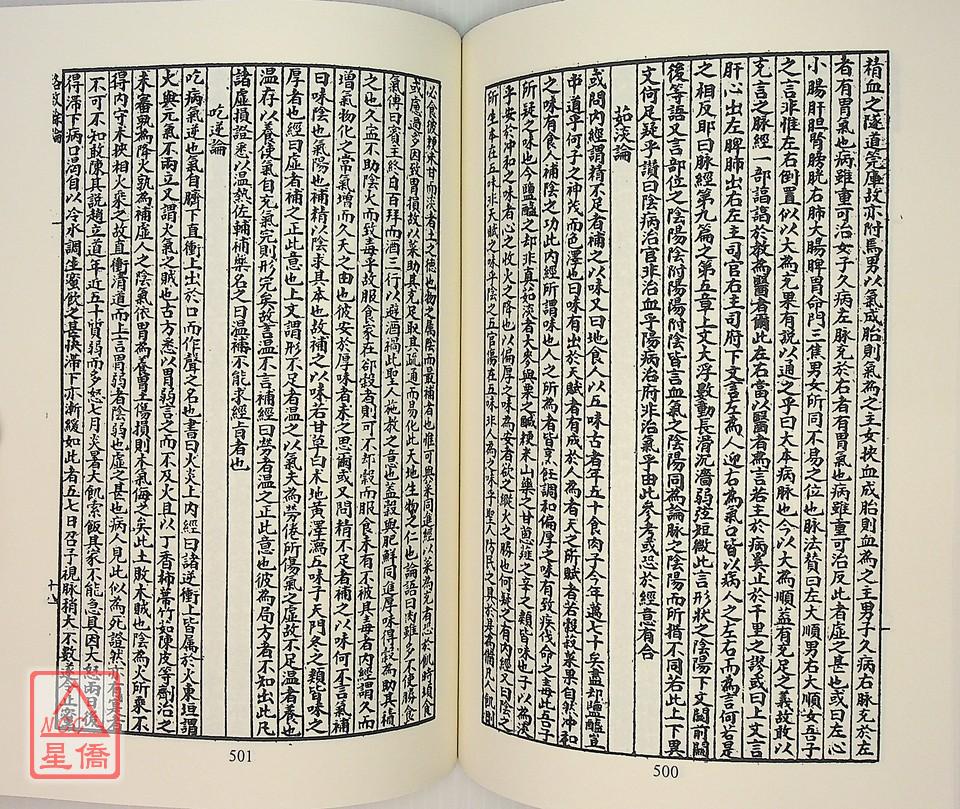 精血之隧道筦庫故亦附焉男以氣成胎則氣為之主女挾血成胎則血為之主男子久病右脉充於左
者有胃氣也病雖重可治女子久病左脉充於右者有胃氣也病雖重可治反此者虛之甚也或曰左心
小腸肝胆腎膀胱右肺大腸脾胃命門三焦男女所同不易之位也脉法贊曰左大順男右大順女吾子
之言非惟左右倒置似以大為充果有說以通之乎曰大本病脉也今以大為順蓋有充足之義故敢以
充言之脉經一部諄諄於教為醫者爾此左右當以醫者為言若主於病奚止於千里之謬或曰上文言
肝心出左脾肺出右左主司官右主司府下文言左為人迎右為氣口皆以病人之左右而為言何若是
之相反耶曰脉經第九篇之第五章上文大浮數動長滑沉濇弱弦短微此言形狀之陰陽下文關前關
後等語又言部位之陰陽陰附陽陽附陰皆言血氣之陰陽同為論脉之陰陽而所指不同若此上下異
文何足疑乎讚曰陰病治官非治血乎陽病治府非治氣乎由此參考或恐於經意有合
茹淡論
或問內經謂精不足者補之以味又曰地食人以五味古者年五十食肉子今年邁七十矣盡却鹽醯豈
中道乎何子之神茂而色澤也曰味有出於天賦者有成於人為者天之所賦者若穀菽菜果自然冲和
之味有食人補陰之功此內經所謂味也人之所為者皆烹飪調和偏厚之味有致疾伐命之毒此吾子
之疑味也今鹽醯之却非真茹淡者大麥與栗之鹹粳米山藥之甘葱薤之辛之類皆味也子以為淡
乎安於冲和之味者心之收火之降也以偏厚之味為安者欲之縱火之勝也何疑之有內經又曰陰之
所生本在五味非天賦之味乎陰之五宮傷在五味非人為之味乎聖人防民之具於是為備凡人飢則
500
必食彼粳米甘而淡者土之德也物之屬陰而最補者也惟可與菜同進經以菜為充者恐於飢時頓食
或慮過多因致胃損故以菜助其充足取其疏通而易化此天地生物之仁也論語曰肉雖多不使勝食
氣傳曰賓主終日百拜而酒三行以避酒禍此聖人施教之意也蓋穀與肥鮮同進厚味得穀為助其積
之也久寧不助陰火而致毒乎故服食家在却穀者則可不却穀而服食未有不被其毒者內經謂久而
增氣物化之常氣增而久夭之由也彼安於厚味者未之思爾或又問精不足者補之以味何不言氣補
曰味陰也氣陽也補精以陰求其本也故補之以味若甘草白朮地黃澤瀉五味子天門冬之類皆味之
厚者也經曰虛者補之正此意也上文謂形不足者溫之以氣夫為勞倦所傷氣之虛故不足溫者養也
溫存以養使氣自充氣完則形完矣故言溫不言補經曰勞者溫之正此意也彼為局方者不知出此凡
諸虛損證悉以溫熱佐輔補藥名之曰溫補不能求經旨者也
吃逆論
吃病氣逆也氣自臍下直衝上出於口而作聲之名也書曰火炎上內經曰諸逆衝上皆屬於火東垣謂
火與元氣不兩立又謂火氣之賊也古方悉以胃弱言之而不及火且以丁香柿蒂竹茹陳皮等劑治之
未審孰為降火孰為補虛人之陰氣依胃為養胃土傷損則木氣侮之矣此土敗木賊也陰為火所乘不
得內守木挾相火乘之故直衝清道而上言胃弱者陰弱也虛之甚也病人見此似為死證然亦有實者
不可不知敢陳其說趙立道年近五十質弱而多怒七月炎暑大飢索飯其家不能急具因大怒兩日後
得滯下病口渴自以冷水調生蜜飲之甚快滯下亦漸緩如此者五七日召予視脉稍大不數遂令止蜜
格致餘論
501
NCC
星僑